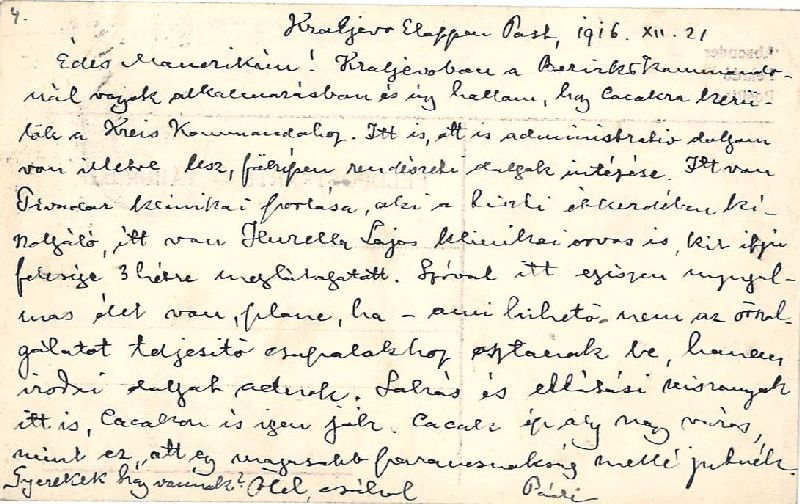 4.
Kraljevo Etappen Post, 1916. XII. 21
Édes Mamerikám! Kraljevoban a Bezirkskommando-
nál vagyok alkalmazásban és úgy hallom, hogy Cacakra kerü-
lök a Kreis Kommandohoz. Itt is, ott is administrativ dolgom
van illetve lesz, főképen rendészeti dolgok intézése. Itt van
Tivadar klinikai portása, aki a tiszti étkezdében ki-
szolgáló, itt van Hurella Lajos klinikai orvos is, kit ifjú
felesége 3 hétre meglátogatott. Szóval itt egészen nyugal-
mas élet van, pláne, ha - ami hihető - nem az őrszol-
gálatot teljesítő csapatokhoz osztanak be, hanem
irodai dolgok adnak. Lakás és ellátási viszonyok
itt is, Cacakon is igen jók. Cacak ép oly nagy város,
mint ez, ott egy magasabb parancsnokság mellé jutnék.
Gyerekek hogy vannak? Ölel, csókol Páli